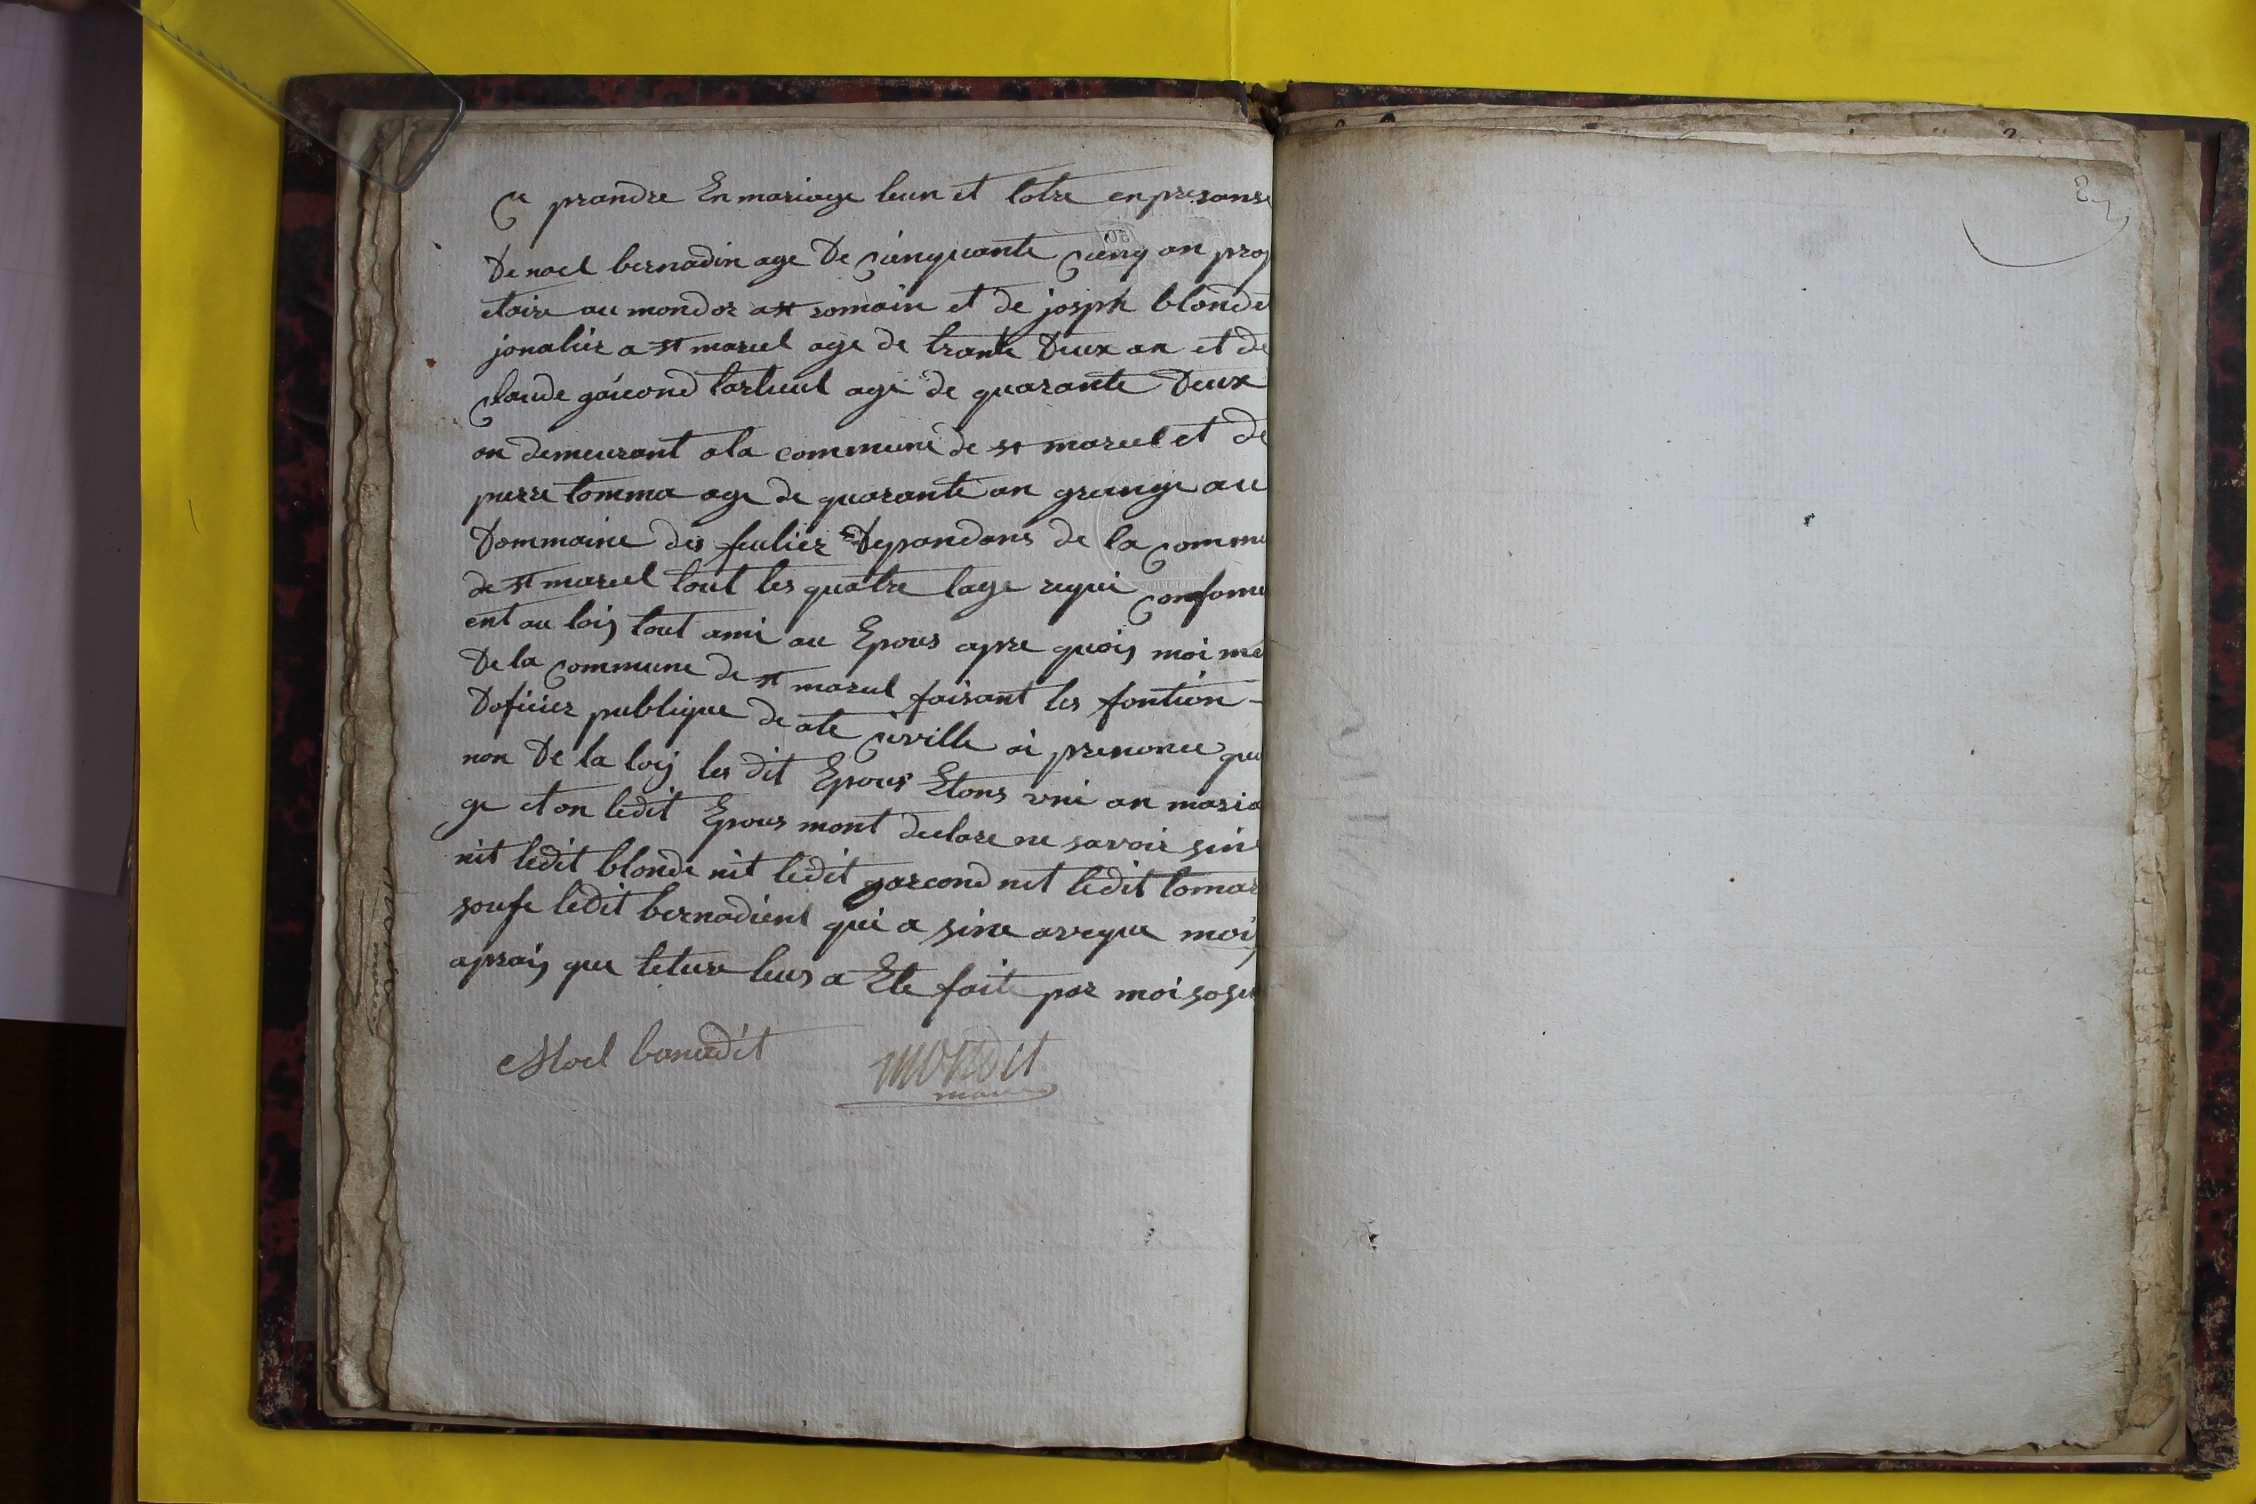 Ce prandre En mariage leun et lotre en presanse
De noel bernadin age De Cienquante Cienq an prop
etaire au mondor a st romain et de josph blonde
jonalier a st marcel age de trante Deux an et de
Claude garcond tarlieul age de quarante Deux
an demeurant a la commune de st marcel et de
pierre tomma age de quarante an grangie au
Dommaine des feulier Depandans de la Commu
de st marcel tout les quatre lage requi Confome
ent au loiy tout ami au Epous apre quoiy moi me
De la Commune de st marcel faisant les fontion
Doficier publique de ate Civille ai prenonce que
non De la loiy les dit Epous Etons uni an maria
ge et on ledit Epous mont declare ne savoir sine
nit ledit blonde nit ledit garcond nit ledit tomas
soufe ledit bernadient qui a sine aveque moiy
apraiy que leture leus a Ete faite par moi sosu
Noel banadit
mondet
maire